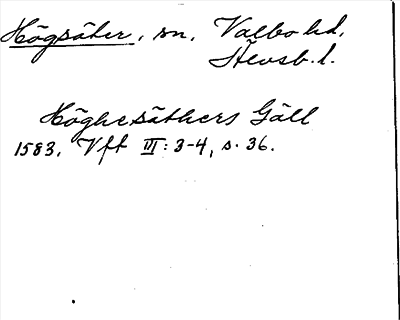 Högsäter, sn, Valbo hd,
Älvsb. l.
Höghesäthers Gäll
1583. Vft III: 3-4, s. 36.